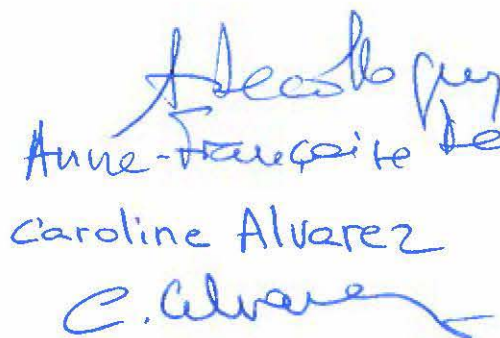 Anne-Françoise De
Caroline Alvarez
C. Alvarez